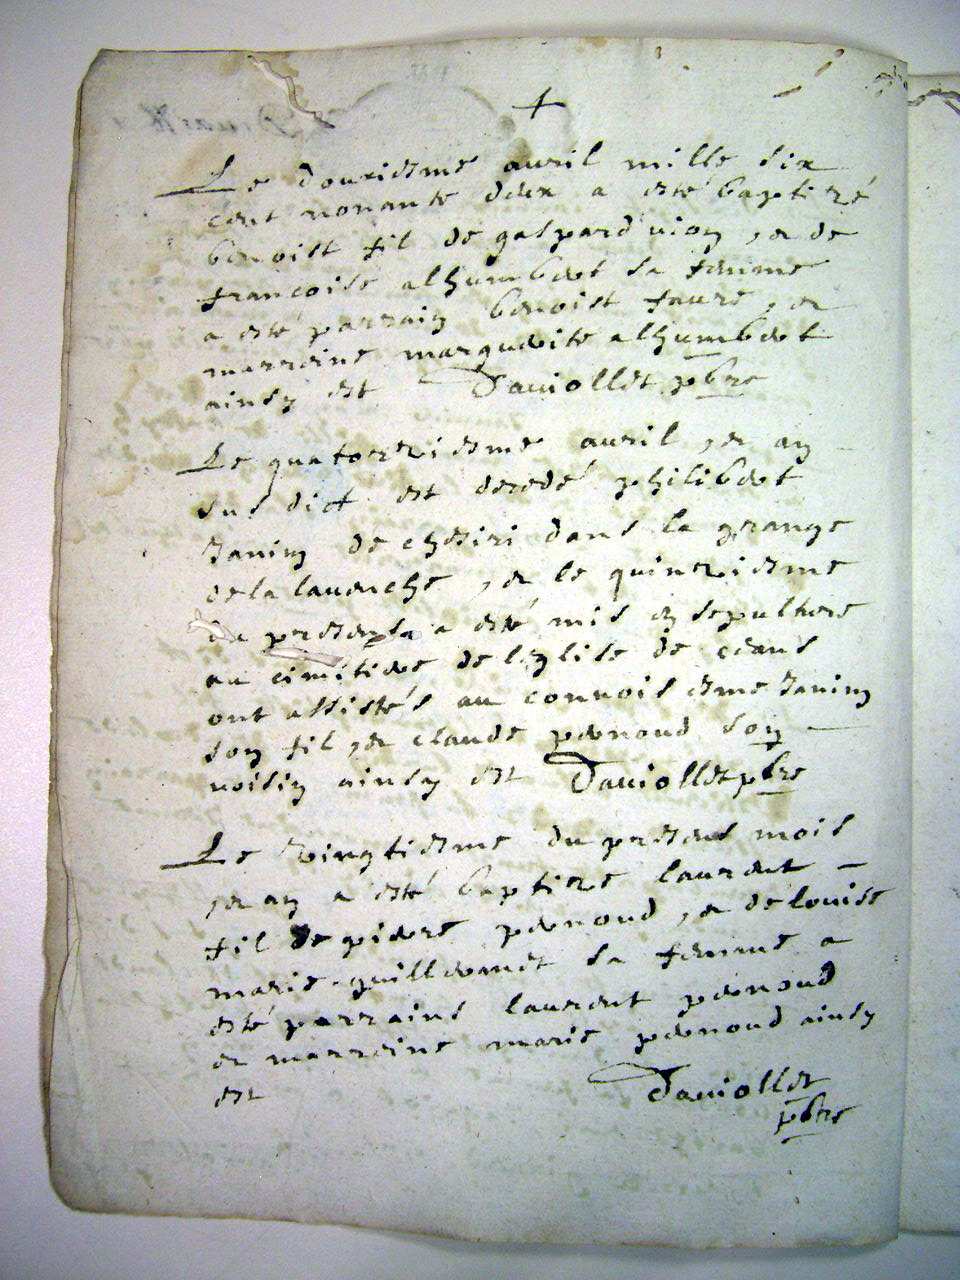 +
Le douxiesme auril mille six
cent nonante deux a esté baptizé
benoist fil de gaspard uion , et de
francoise alhumbert sa femme
a esté parrain benoist faure , et
marreine marguerite alhumbert
ainsy est Dauiollet pbre
Le quatorziesme auril , et an
sus dict est decedé philibert
Janin de chesiri dans la grange
de la lauenche , et le quinziesme
du a esté mis en sepulture
au cimitiere de leglise de ceans
ont assistés au connois esme Janin
son fil , et claude pernoud son
uoisin ainsy est Dauiollet pbre
Le vingtiesme du present mois
, et an a esté baptize laurent
fil de pierre pernoud , et de louise
marie guillermet sa femme a
esté parrains laurent pernoud
et marreine marie pernoud ainsy
est Dauiollet
pbre